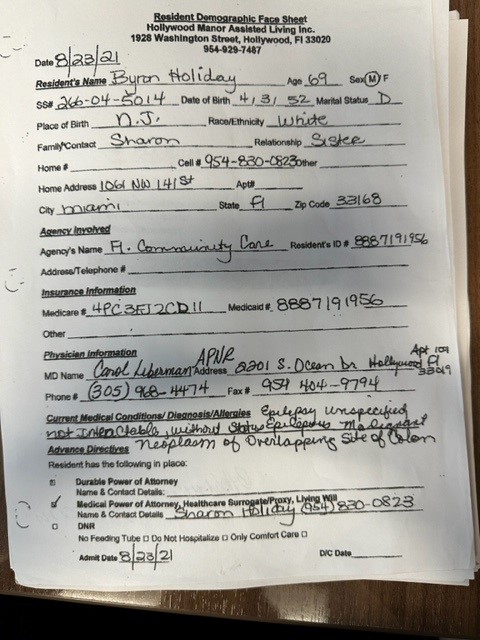 Resident Demographic Face Sheet
Hollywood Manor Assisted Living Inc.
1928 Washington Street, Hollywood, Fl 33020
954-929-7487
Date 8/23/21
Resident's Name Byron Holiday Age 69 Sex M F
SS# 266-04-5014 Date of Birth 4/3/52 Marital Status D
Place of Birth N.J. Race/Ethnicity White
Family Contact Sharon Relationship Sister
Home # Cell # 954-830-0823 other
Home Address 1061 NW 141 St Apt#
City Miami State Fl Zip Code 33168
Agency Involved
Agency's Name Fl. Community Care Resident's ID # 8887191956
Address/Telephone #
Insurance Information
Medicare # 4PC3EJ2CD11 Medicaid# 8887191956
Other
Physician Information
MD Name Carol Liberman APNR Address 2201 S. Ocean Dr Hollywood Fl Apt 109 33019
Phone # (305) 968-4474 Fax # 954 404-9794
Current Medical Conditions/ Diagnosis/Allergies Epilepsy Unspecified
not Intractable, without Status Epilepticus Malignant
Advance Directives Neoplasm of Overlapping Site of Colon
Resident has the following in place:
Durable Power of Attorney
Name & Contact Details:
Medical Power of Attorney, Healthcare Surrogate/Proxy, Living Will
Name & Contact Details Sharon Holiday (954) 830-0823
DNR
No Feeding Tube □ Do Not Hospitalize □ Only Comfort Care □
Admit Date 8/23/21 D/C Date